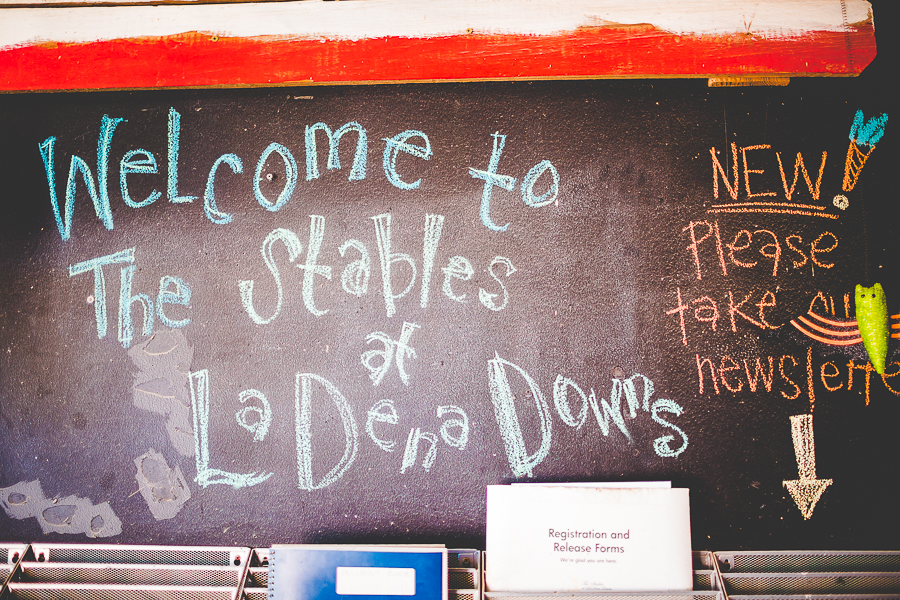 Welcome to
The Stables
at
La Dena Downs
NEW
Please
take
Registration and
Release Forms
We're glad you are here.